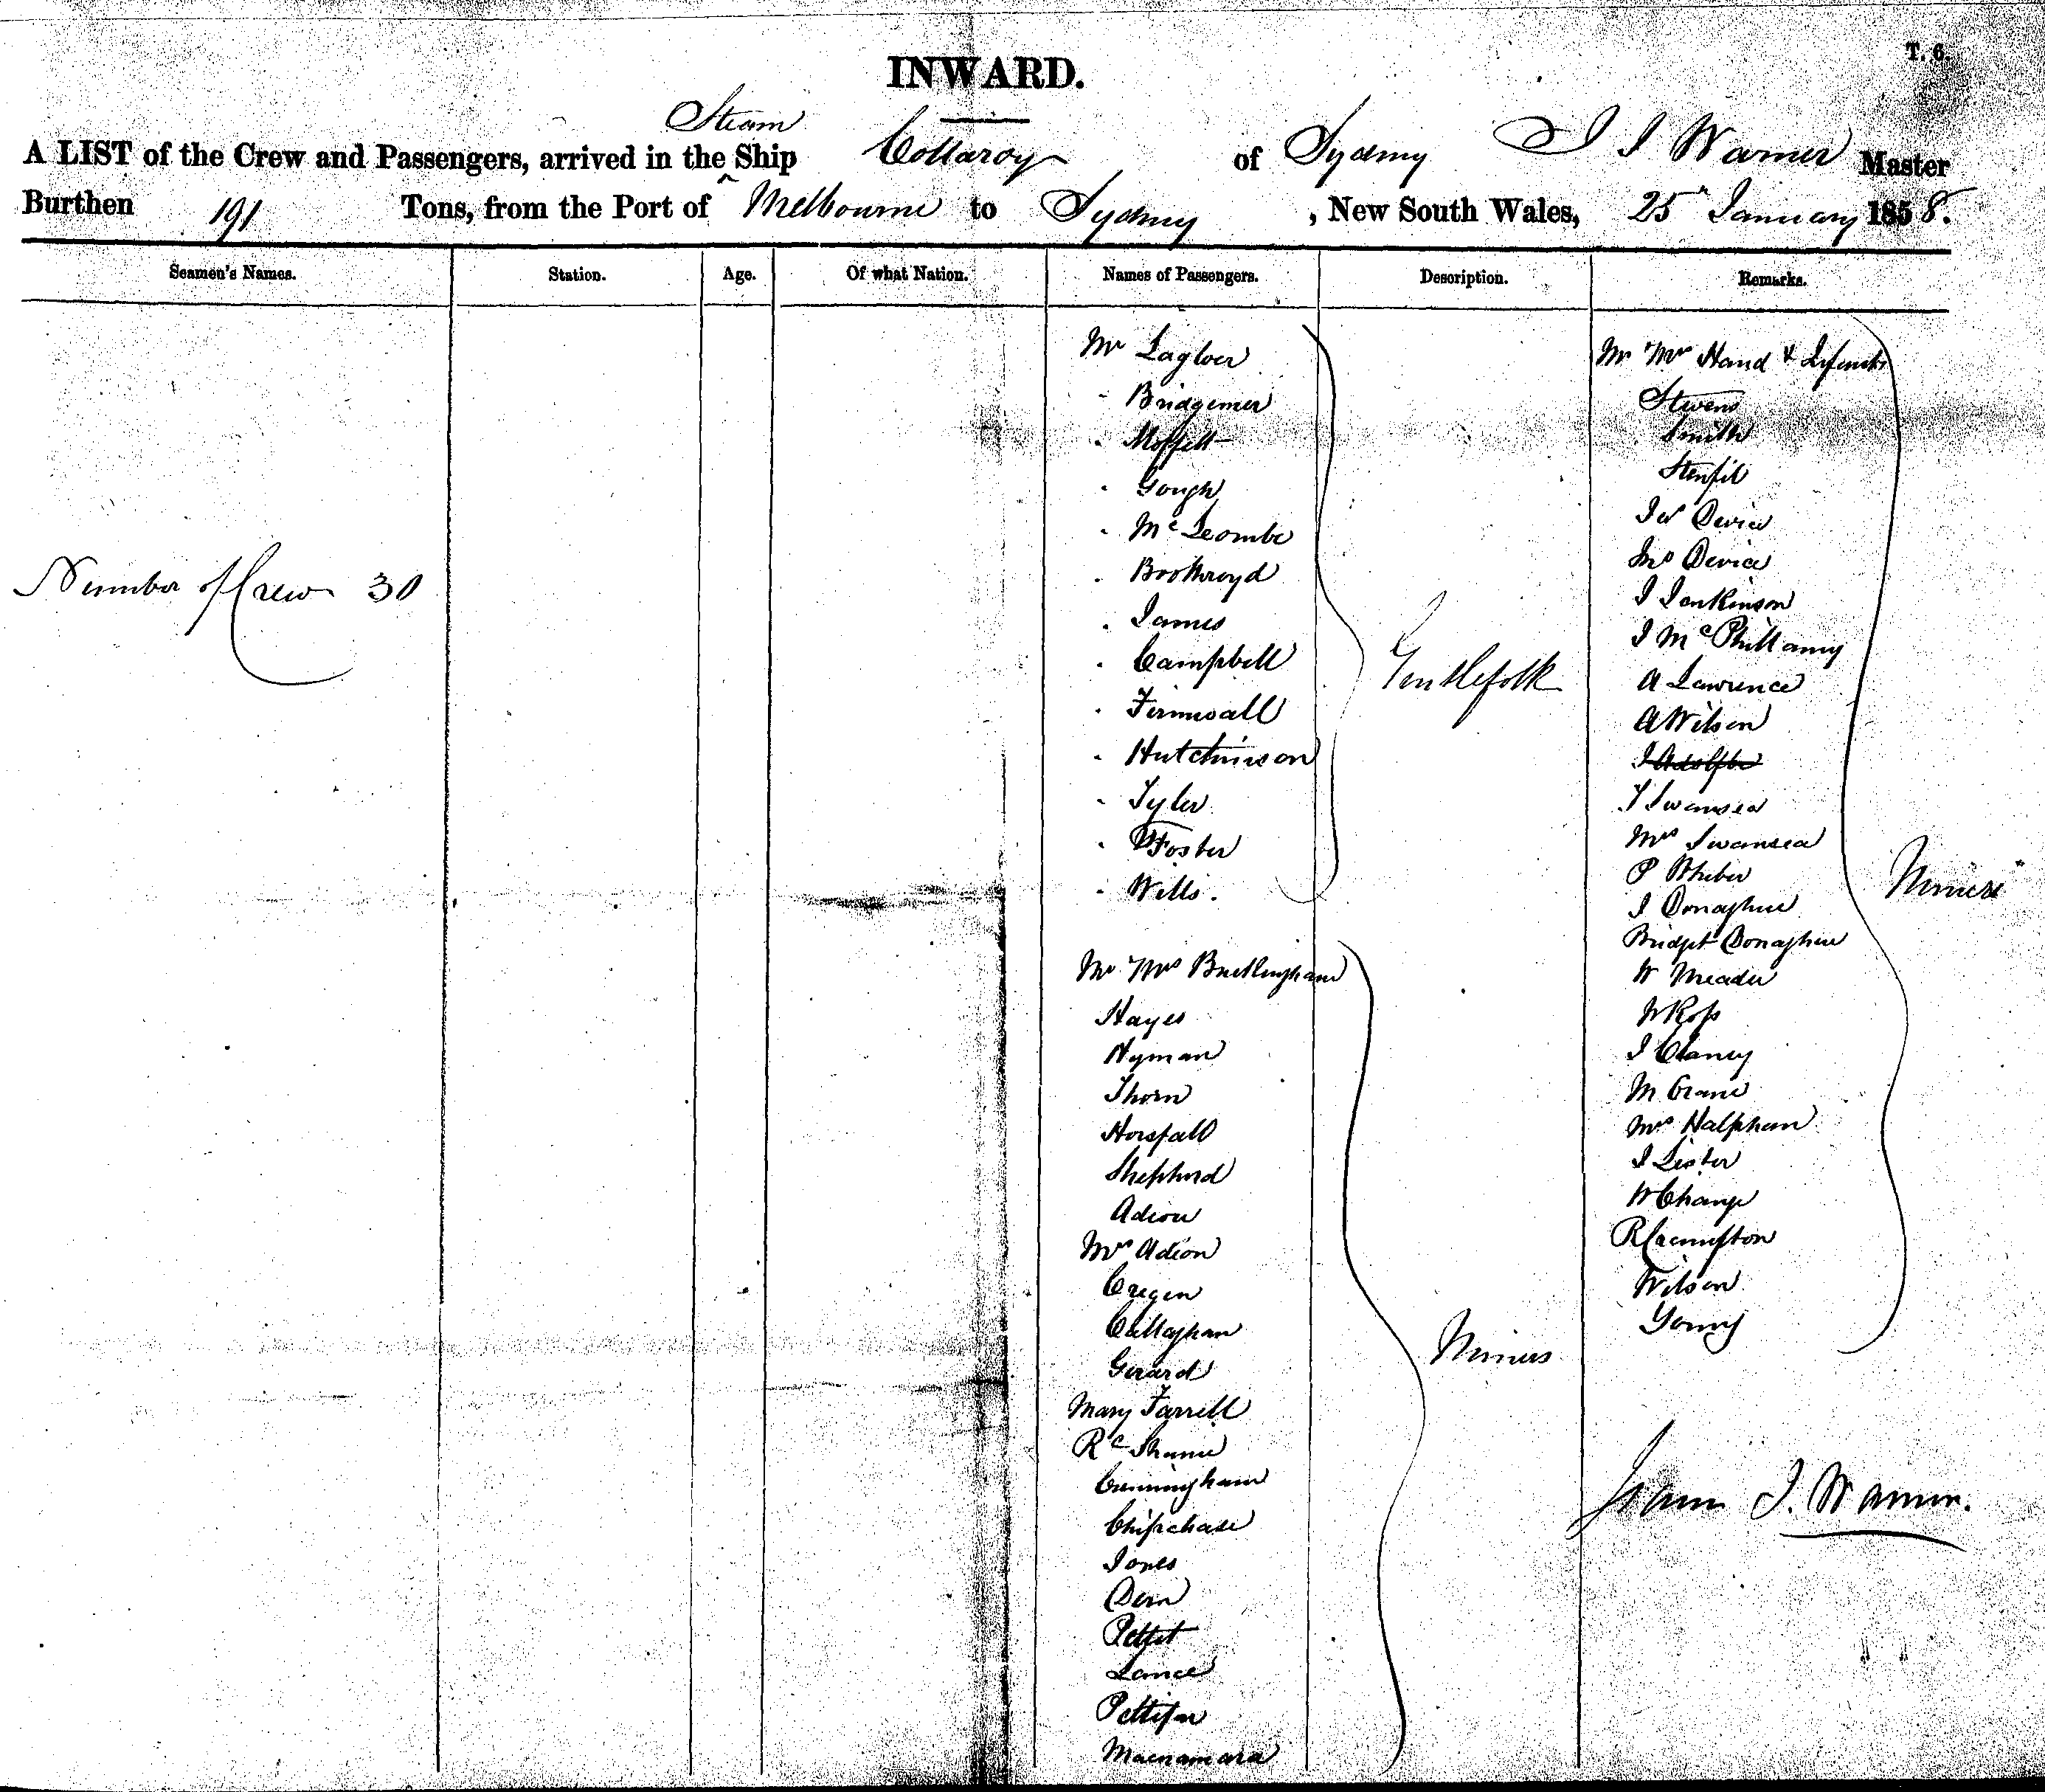 T. 6.
INWARD.
Steam
A LIST of the Crew and Passengers, arrived in the Ship Collaroy of Sydney J J Warner Master
Burthen 191 Tons, from the Port of Melbourne to Sydney, New South Wales, 25 January 1858.
Seamen's Names. Station. Age. Of what Nation. Names of Passengers. Description. Remarks.
Number of Crew 30
Mr
" Bridgemer
" Moffett
" Gough
" Mc Leombe
" Boothroyd
" James
" Campbell
"
" Hutchinson
" Tyler
" Foster
" Wills.
Gentlefolk
Mr Mrs Buckingham
Hayes
Hyman
Thorn
Horsfall
Shepherd
Adion
Mrs Adion
Cregen
Callaghan
Gerard
Mary Farrell
Cunningham
Chipchase
Jones
Dern
Pettit
Lance
Pettifer
Macnamara
Miners
Mr Mrs Hand & Infant
Stevens
Smith
Devia
Mrs Devia
J Jenkinson
J Mc Phillamy
A Lawrence
A Wilson
J Adolfbe
T Swansea
Mrs Swansea
P Wheber
J Donaghue
Bridget Donaghue
W Meader
W Ross
J Clancy
M Crane
Mrs Halpham
J Lester
W Change
R
Wilson
Young
Miners
J. Warner.